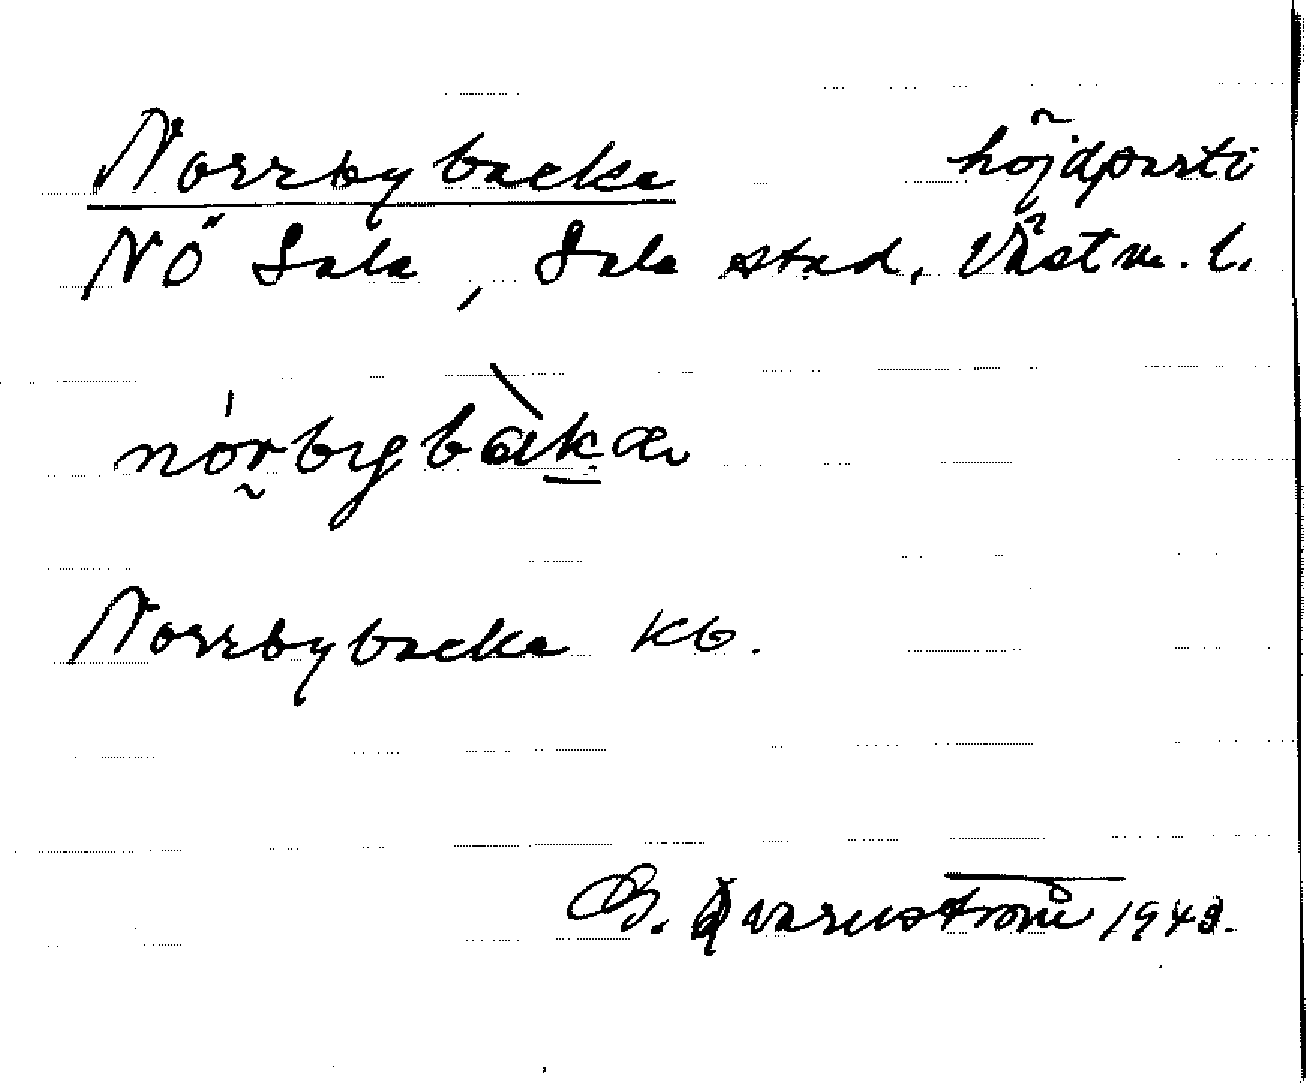 Norrbybacka höjdparti
NÖ Sala, Sala stad, Västm. l.
nórbybàka
Norrbybacka kb.
B. Qvarnström 1942.